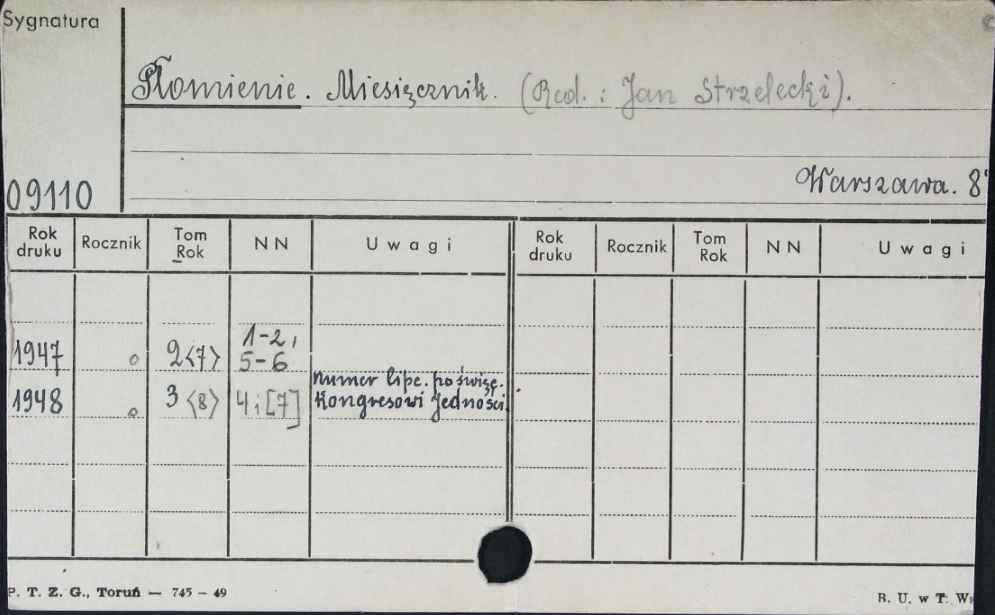 Sygnatura
Płomienie. Miesięcznik. (Red.: Jan Strzelecki).
Warszawa. 8°
09110
Rok druku Rocznik Tom Rok NN Uwagi Rok druku Rocznik Tom Rok NN Uwagi
1947 o 2<7> 1-2, 5-6
1948 o 3<8> 4 i [7] numer lipc. poświęc. Kongresowi Jedności.
P. T. Z. G., Toruń — 745 – 49
B. U. w T.